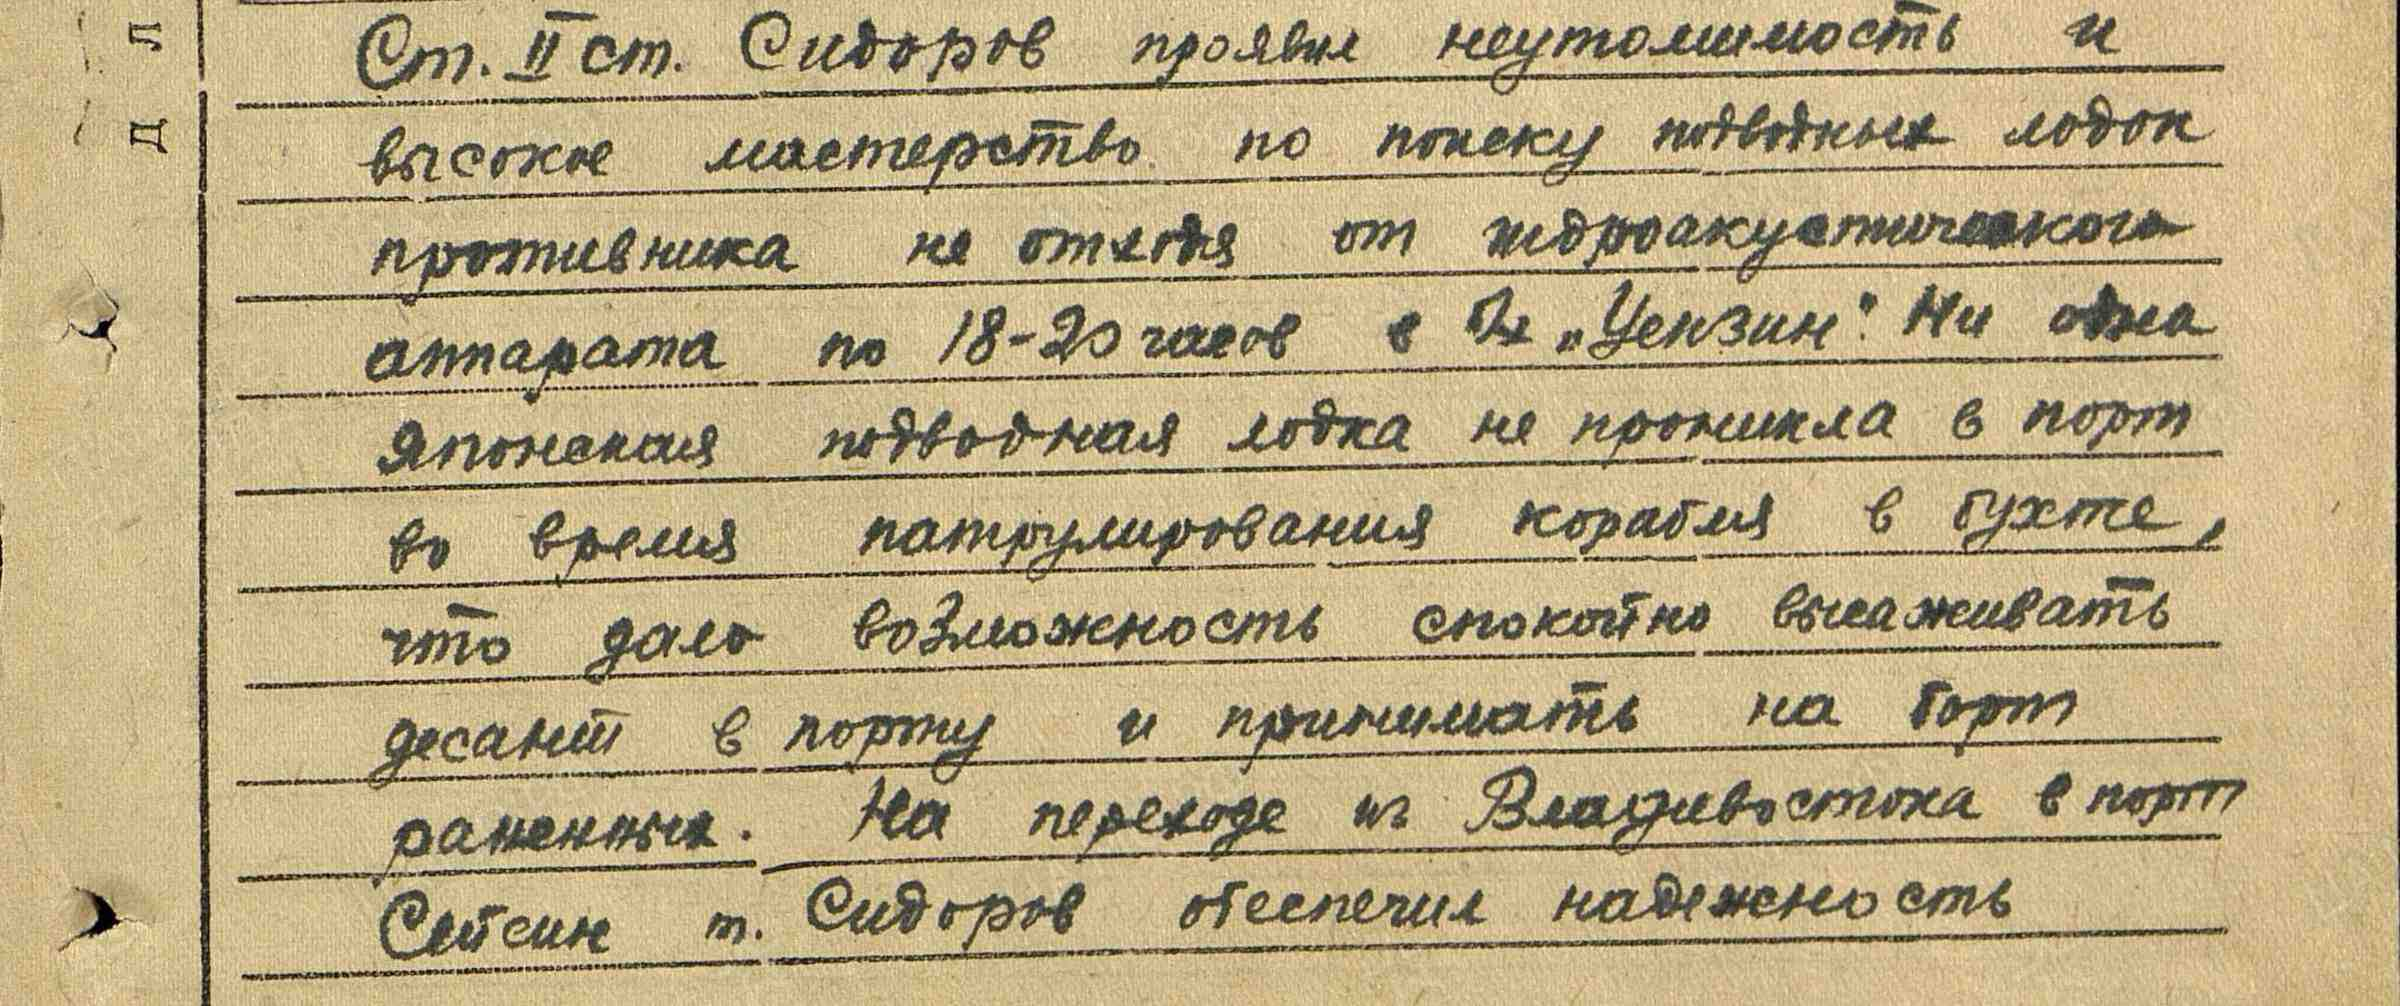 Л
Д
Ст. II ст. Сидоров проявил неутомимость и
высокое мастерство по поиску подводных лодок
противника не отходя от гидроакустического
аппарата по 18-20 часов в "Уензин". Ни одна
японская подводная лодка не проникла в порт
во время патрулирования корабля в бухте,
что дало возможность спокойно высаживать
десант в порту и принимать на борт
раненных. На переходе из Владивостока в порт
Сейсин т. Сидоров обеспечил надежность